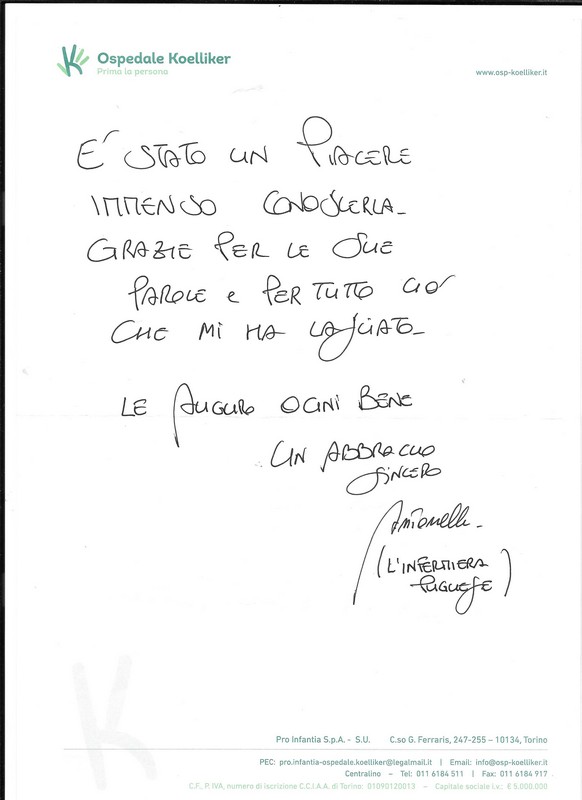 Ospedale Koelliker
Prima la persona
www.osp-koelliker.it
E' STATO UN PIACERE
IMMENSO CONOSCERLA_
GRAZIE PER LE SUE
PAROLE e PER TUTTO CIO'
CHE MI HA LASCIATO_
LE AUGURO OGNI BENE
UN ABBRACCIO
SINCERO
Antonella_
(L'INFERMIERA
PUGLIESE)
Pro Infantia S.p.A. - S.U. C.so G. Ferraris, 247-255 – 10134, Torino
PEC: pro.infantia-ospedale.koelliker@legalmail.it | Email: info@osp-koelliker.it
Centralino – Tel: 011 6184 511 | Fax: 011 6184 917
C.F., P. IVA, numero di iscrizione C.C.I.A.A. di Torino: 01090120013 – Capitale sociale i.v.: € 5.000.000